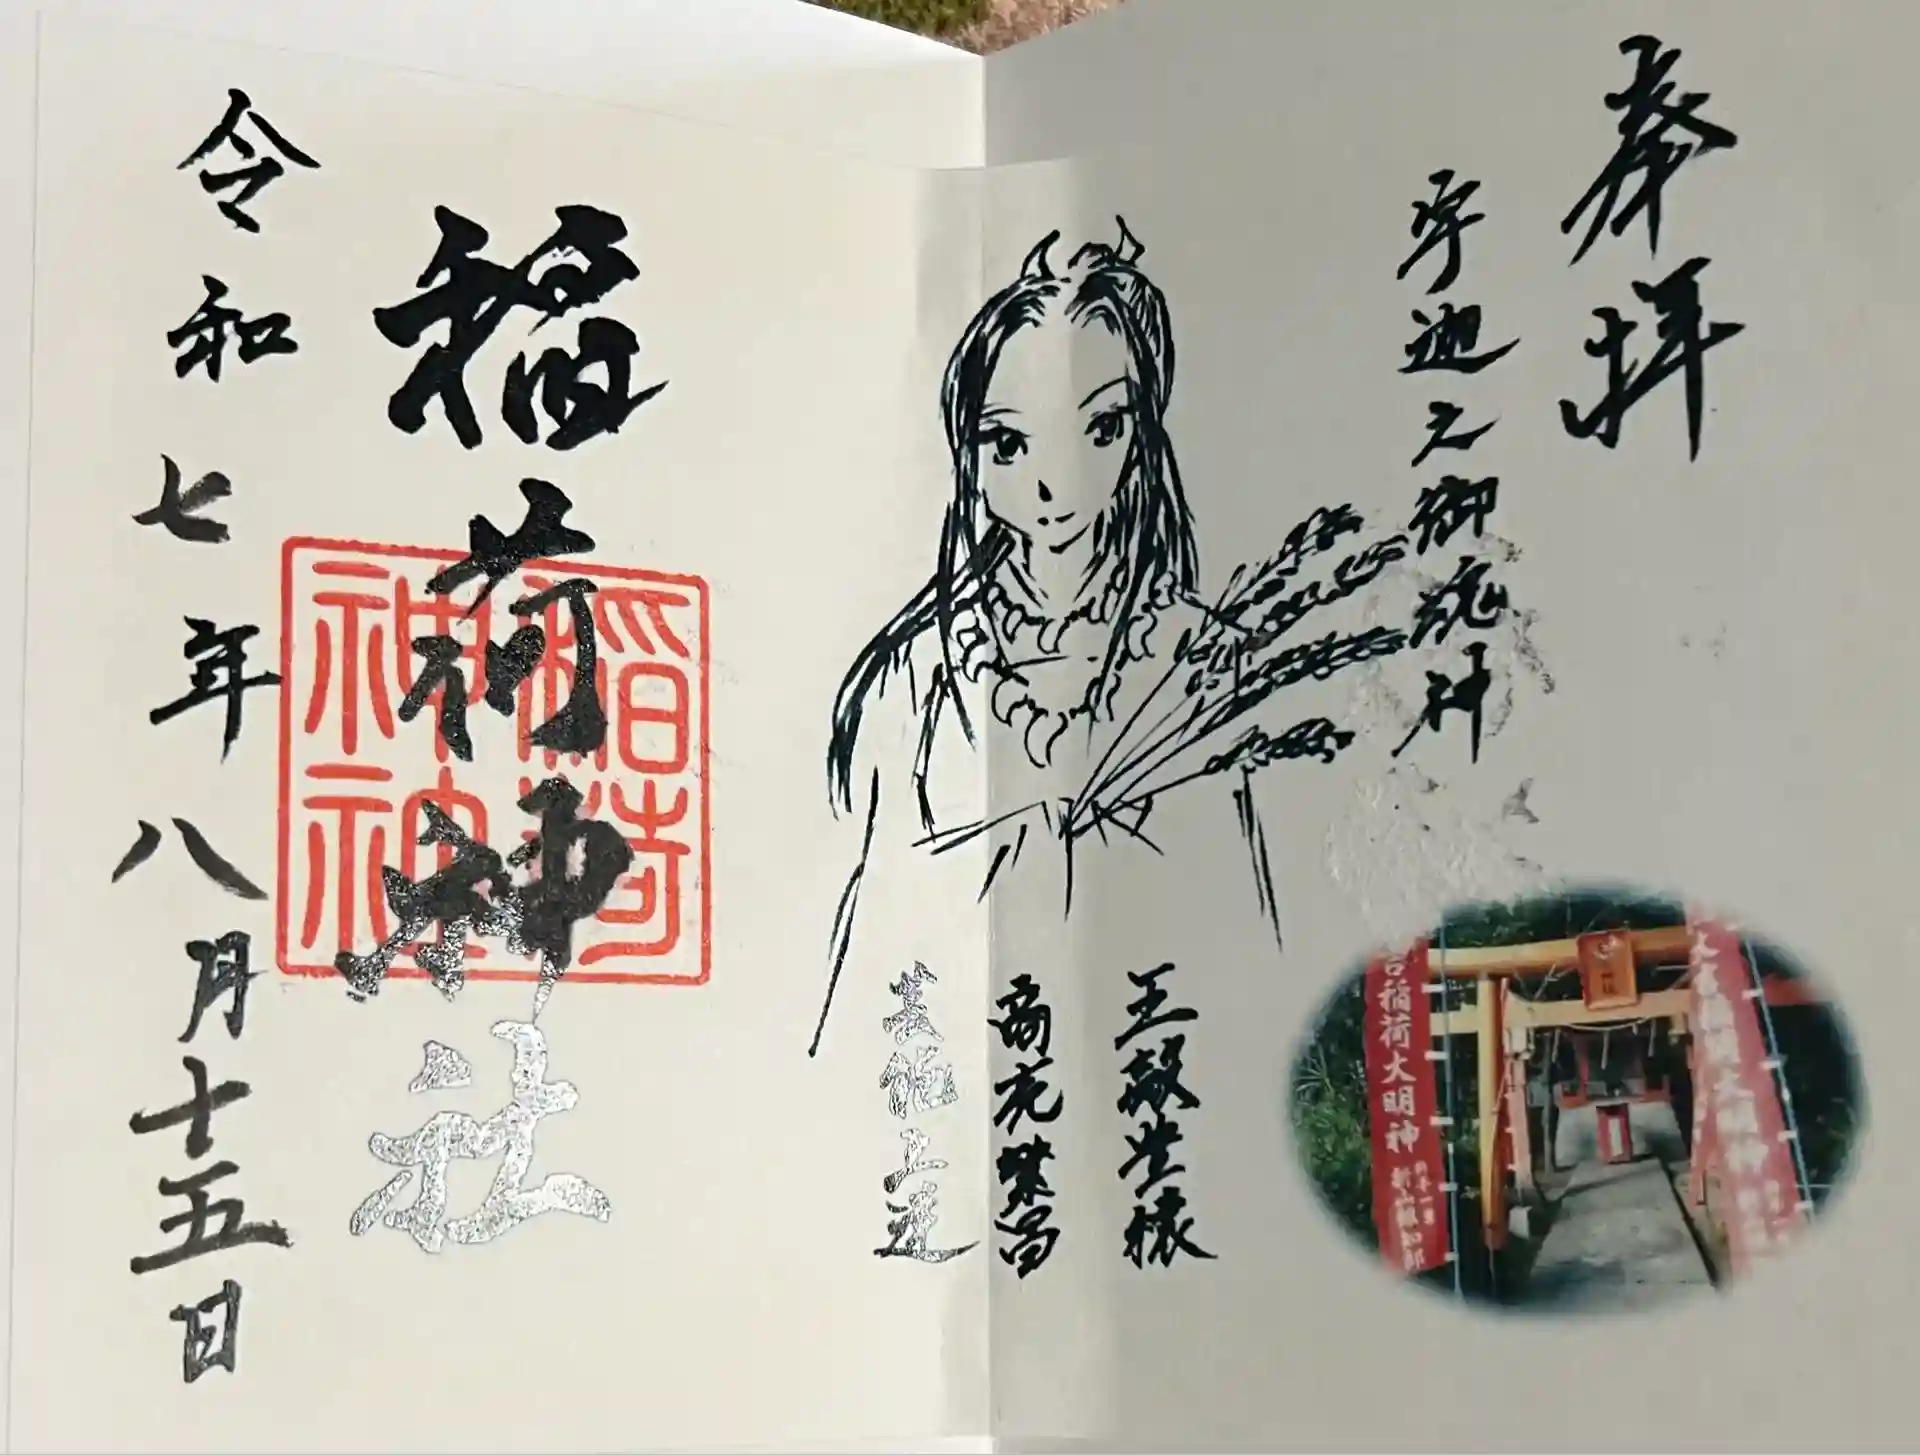 奉拝
宇迦之御魂神
五穀豊穣
商売繁昌
芸能上達
稲荷神社
稲荷
神社
令和七年八月十五日
稲荷大明神